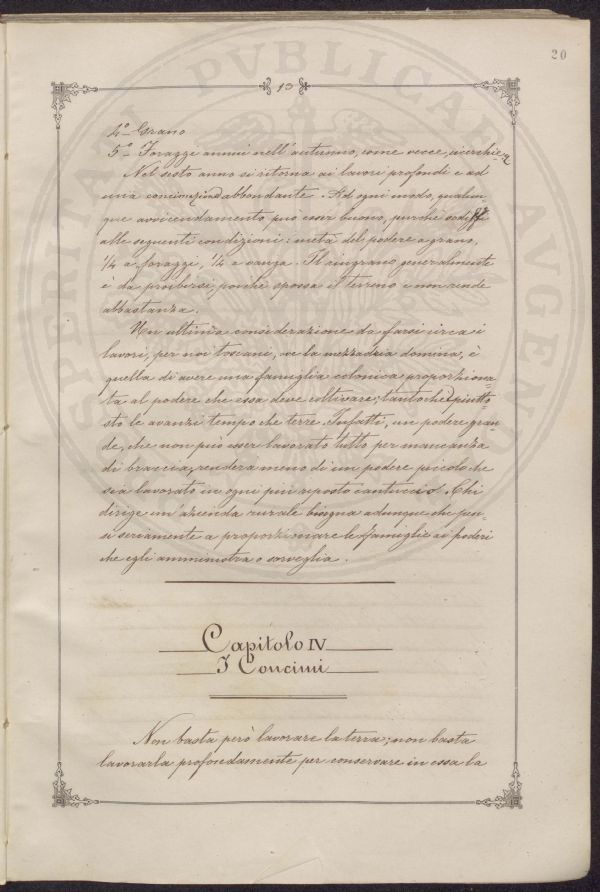 20
13
4° Grano
5° Foraggi annui nell'autunno, come vecce, cicerchie
Nel sesto anno si ritorna ai lavori profondi e ad
una concimazione abbondante. Ad ogni modo, qualun-
que avvicendamento può esser buono, purchè sodisfi
alle seguenti condizioni: metà del podere a grano,
1/4 a foraggi, 1/4 a vanga. Il ringrano generalmente
è da proibirsi, poichè spossa il terreno e non rende
abbastanza.
Un ultima considerazione da farsi circa i
lavori, per noi toscani, ove la mezzadria domina, è
quella di avere una famiglia colonica proporziona-
ta al podere che essa deve coltivare; tantochè piutto-
sto le avanzi tempo che terre. Infatti, un podere gran-
de, che non può esser lavorato tutto per mancanza
di braccia, renderà meno di un podere piccolo che
sia lavorato in ogni più riposto cantuccio. Chi
dirige un'azienda rurale bisogna adunque che pen-
si seriamente a proporzionare le famiglie ai poderi
che egli amministra o sorveglia.
Capitolo IV
I Concimi
Non basta però lavorare la terra; non basta
lavorarla profondamente per conservare in essa la